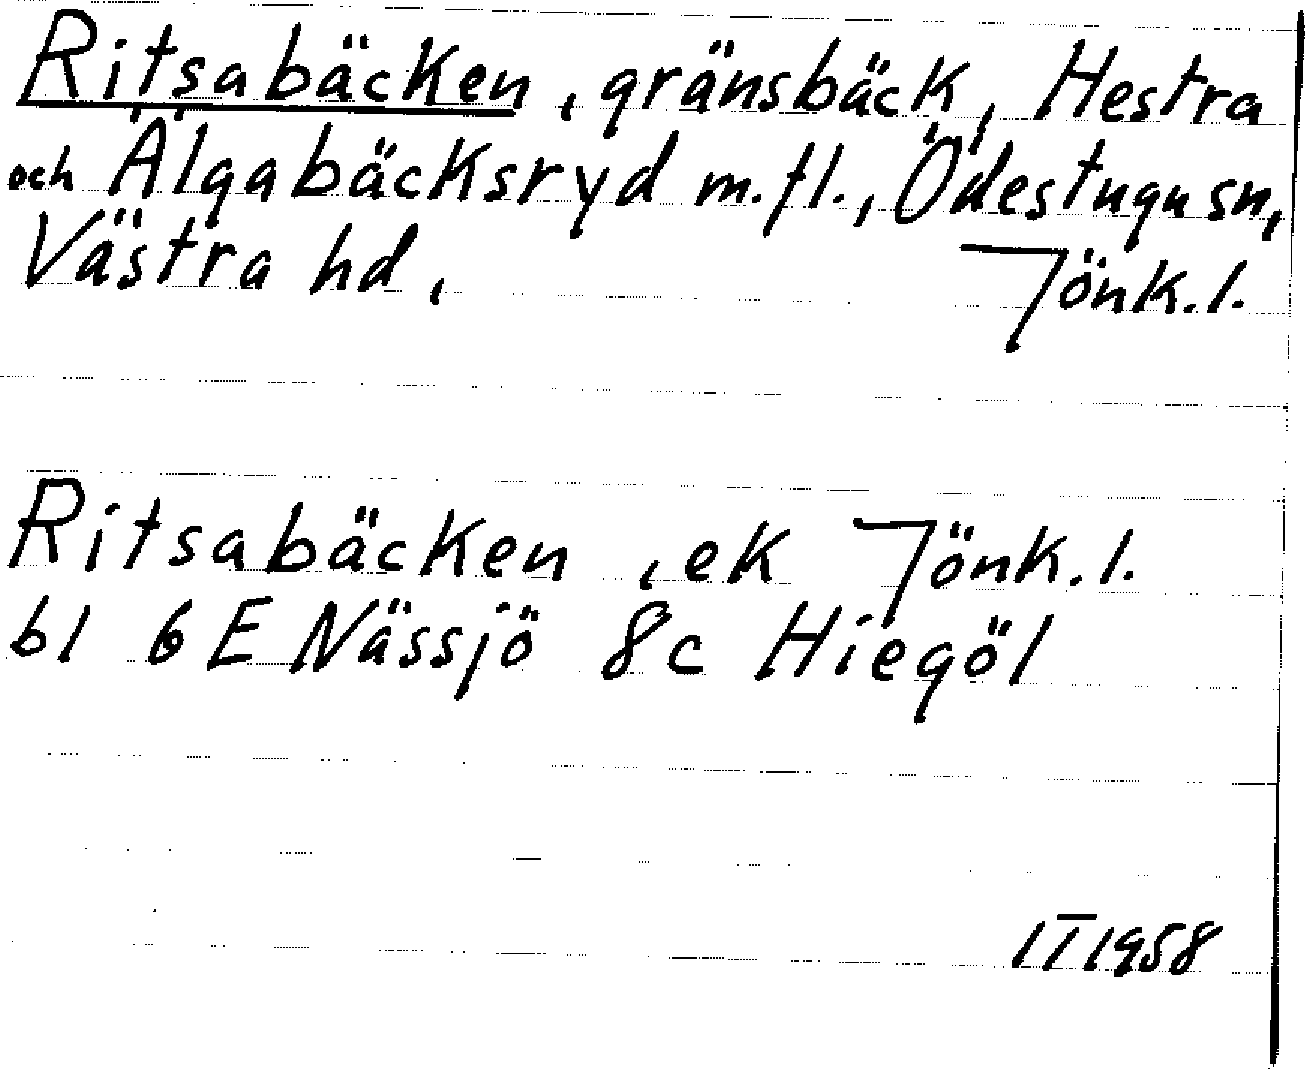 Ritsabäcken, gränsbäck, Hestra
och Älgabäcksryd m.fl., Ödestugu sn,
Västra hd, Jönk.l.
Ritsabäcken, ek Jönk.l.
bl 6 E Nässjö 8c Hiegöl
1 I 1958